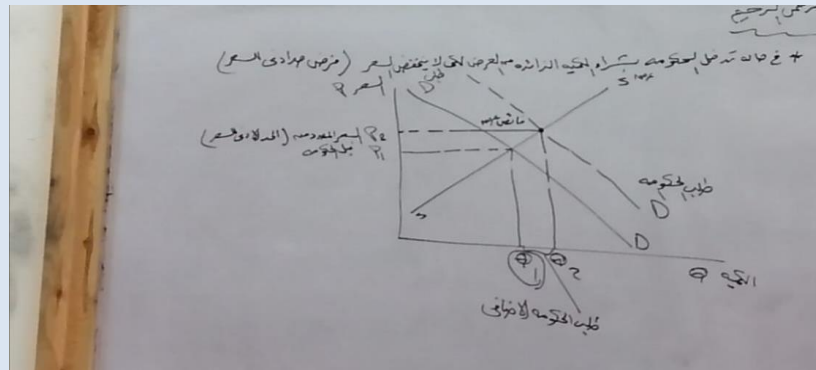 * في حاله تدخل الحكومه بشراء الكميه الزائده من العرض لكى لا ينخفض السعر (فرض حد ادنى للسعر)
السعر P
D
S
فائض عرض
P2 السعر المحدد من (الحد الادنى للسعر)
P1 قبل الحكومه
طلب الحكومه
D
S
D
Q1 Q2
Q الكميه
طلب الحكومه الاضافى